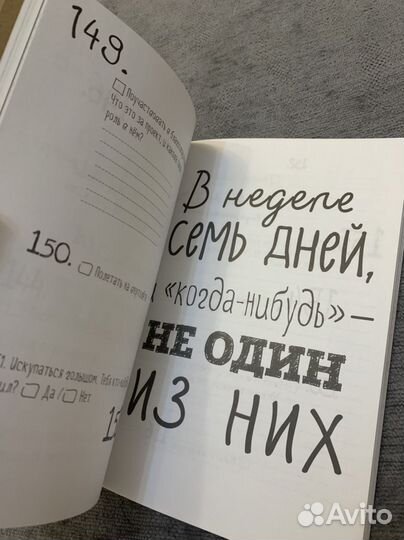 149.
Поучаствовать в
Что это за проект, и какова
роль в нём?
150.
Полетать на
Искупаться голышом. Тебя кто
Да Нет
В неделе
СЕМЬ ДНЕЙ,
«КОГДА-НИБУДЬ» –
НЕ ОДИН
ИЗ НИХ
Avito